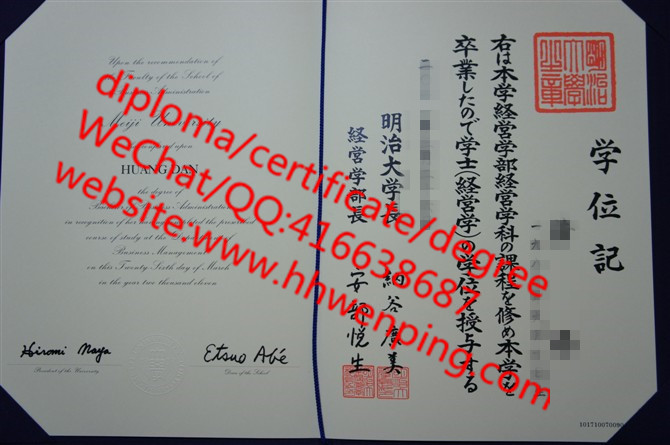 Upon the recommendation of
Faculty of the School of
Business Administration
Meiji University
conferred upon
HUANG DAN
the degree of
Administration
in recognition of her having completed the prescribed
course of study at the
Business Management
on this Twenty-Sixth day of March
in the year two thousand eleven
Hiromi Naya
President of the University
Etsuo Abé
Dean of the School
diploma/certificate/degree
WeChat/QQ:416638687
website:www.hhwenping.com
明治大学之章
学位記
右は本学経営学部経営学科の課程を修め本学を
卒業したので学士(経営学)の学位を授与する
明治大学長 納谷廣美
経営学部長 安部悦生
101710070090